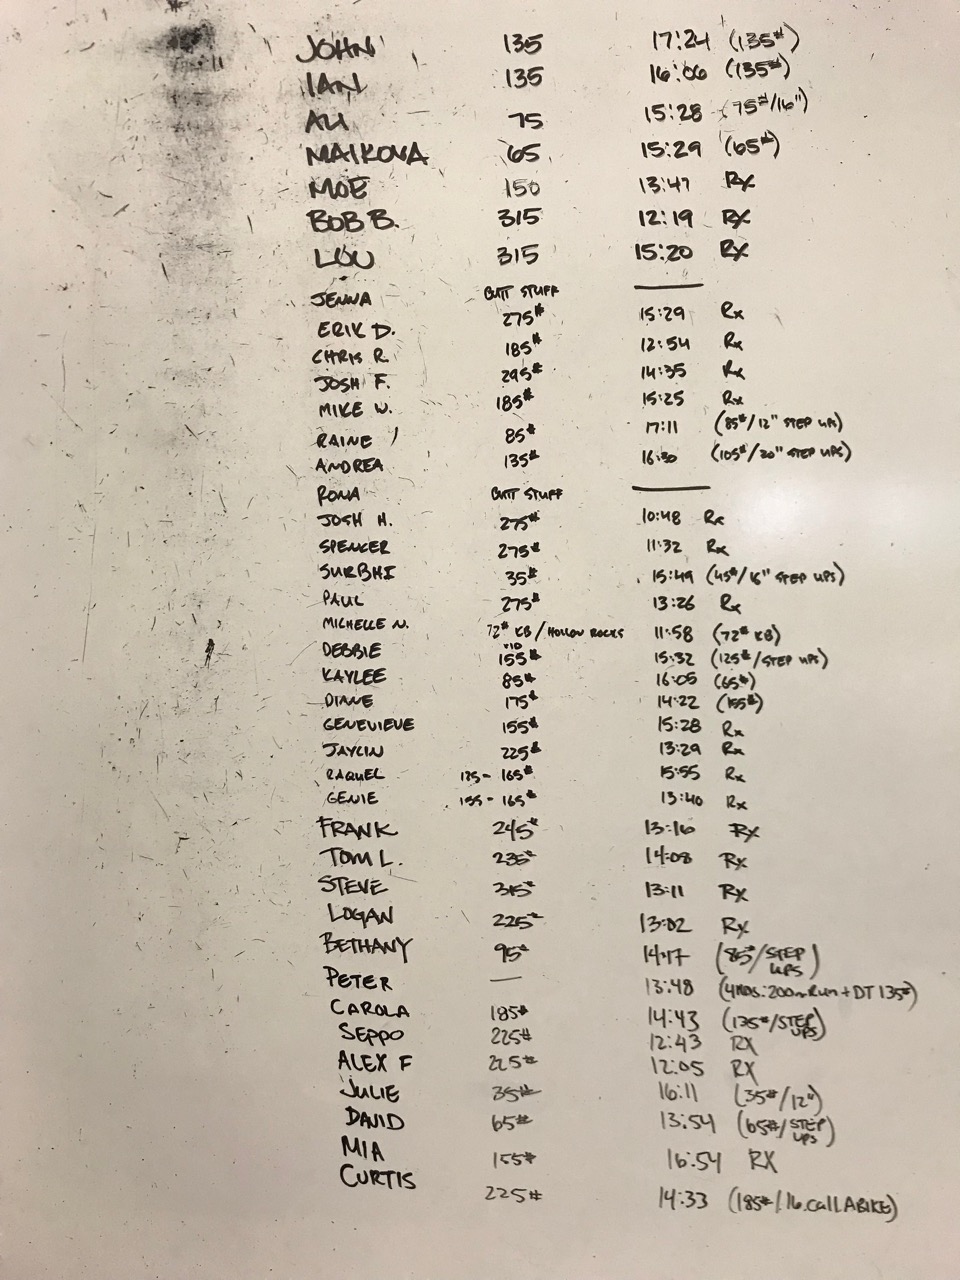 JOHN 135 17:24 (135#)
IAN 135 16:06 (135#)
ALI 75 15:28 (75#/16")
MAIKOVA 65 15:29 (65#)
MOE 150 13:47 RX
BOB B. 315 12:19 RX
LOU 315 15:20 RX
JENNA BUTT STUFF —
ERIK D. 275# 15:29 Rx
CHRIS R. 185# 12:54 Rx
JOSH F. 295# 14:35 Rx
MIKE W. 185# 15:25 Rx
RAINE 85# 17:11 (85#/12" STEP UPS)
ANDREA 135# 16:30 (105#/20" STEP UPS)
RONA BUTT STUFF —
JOSH H. 275# 10:48 Rx
SPENCER 275# 11:32 Rx
SURBHI 35# 15:49 (45#/16" STEP UPS)
PAUL 275# 13:26 Rx
MICHELLE N. 72# KB/HOLLOW ROCKS 11:58 (72# KB)
x10
DEBBIE 155# 15:32 (125#/STEP UPS)
KAYLEE 85# 16:05 (65#)
DIANE 175# 14:22 (155#)
GENEVIEVE 155# 15:28 Rx
JAYLIN 225# 13:29 Rx
RAQUEL 165# 15:55 Rx
GENIE 155 - 165# 13:40 Rx
FRANK 245# 13:16 RX
TOM L. 235# 14:08 RX
STEVE 315# 13:11 RX
LOGAN 225# 13:02 RX
BETHANY 95# 14:17 (85#/STEP
UPS)
PETER — 13:48 (4 RDS: 200m Run + DT 135#)
CAROLA 185# 14:43 (135#/STEP
UPS)
SEPPO 225# 12:43 RX
ALEX F 225# 12:05 RX
JULIE 35# 16:11 (35#/12")
DAVID 65# 13:54 (65#/STEP
UPS)
MIA 155# 16:54 RX
CURTIS 225# 14:33 (185#/16 Cal ABIKE)